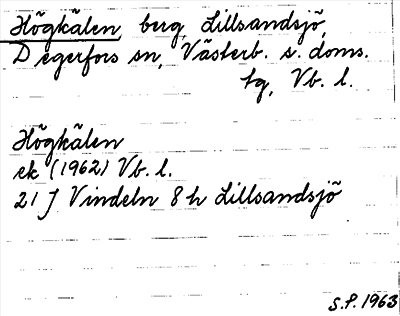 Högkälen, berg, Lillsandsjö,
Degerfors sn, Västerb. s. doms.
tg, Vb. l.
Högkälen
ek (1962) Vb. l.
21 J Vindeln 8 h Lillsandsjö
S.P. 1963